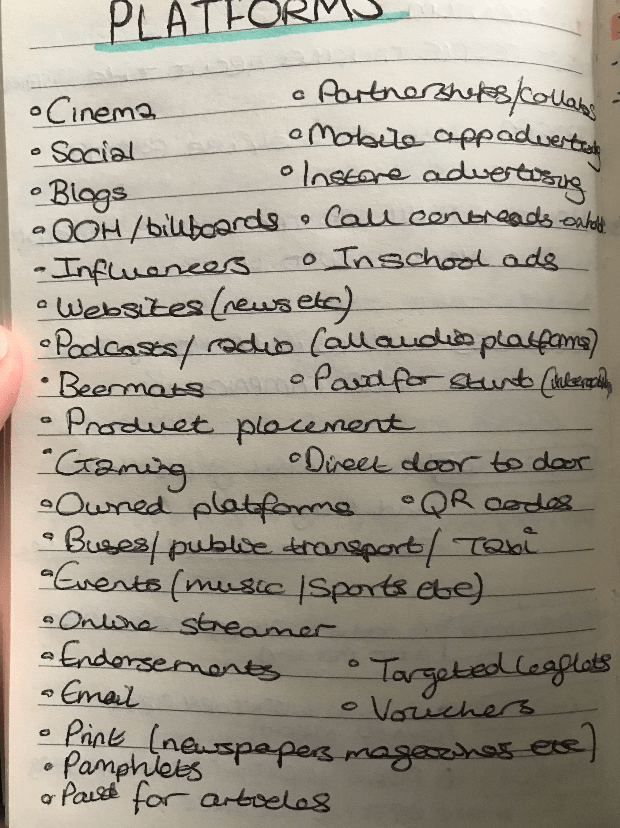 PLATFORMS
• Cinema • Partnerships/collabs
• Social • Mobile app advertising
• Blogs • Instore advertising
• OOH/billboards • Call centre ads on hold
• Influencers • In school ads
• Websites (news etc)
• Podcasts/ radio (all audio platforms)
• Beermats • Paid for stunt
• Product placement
• Gaming • Direct door to door
• Owned platforms • QR codes
• Buses/ public transport/ Taxi
• Events (music /Sports etc)
• Online streamer
• Endorsements • Targeted leaflets
• Email • Vouchers
• Print (newspapers magazines etc)
• Pamphlets
• Paid for articles